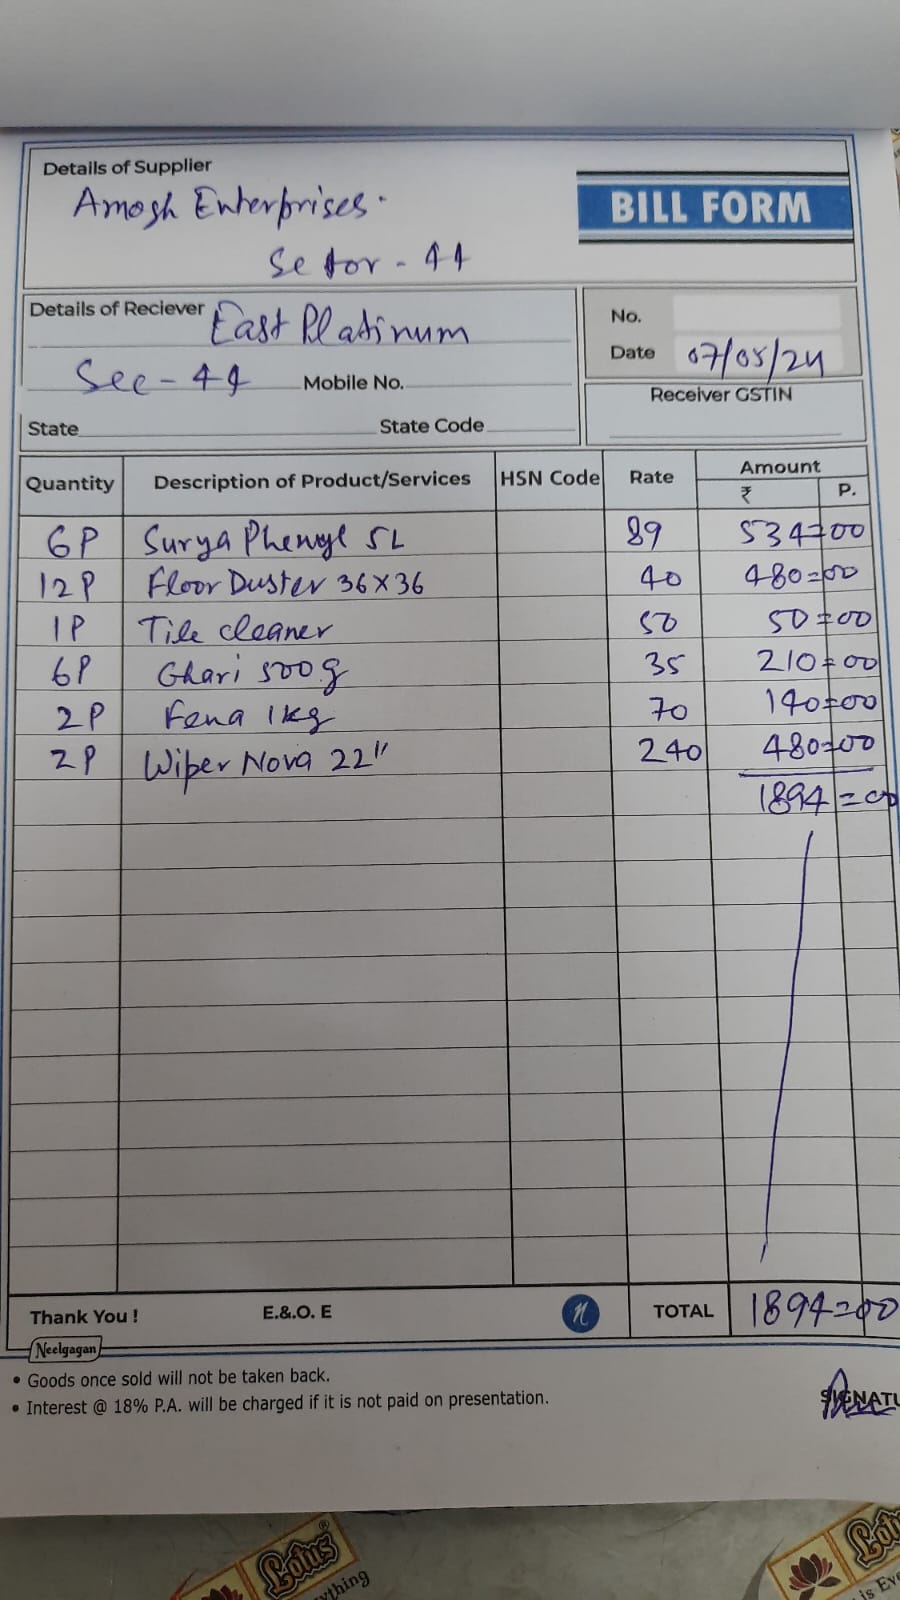 Details of Supplier
Amogh Enterprises.
Setor - 44
BILL FORM
Details of Reciever East Platinum
Sec - 44 Mobile No.
State State Code
No.
Date 07/05/24
Receiver GSTIN
Quantity Description of Product/Services HSN Code Rate Amount
₹ P.
6P Surya Phenyl 5L 89 534=00
12P Floor Duster 36X36 40 480=00
1P Tile cleaner 50 50=00
6P Ghari 500g 35 210=00
2P Fena 1kg 70 140=00
2P Wiper Nova 22" 240 480=00
1894=00
Thank You ! E.&.O. E TOTAL 1894=00
Neelgagan
• Goods once sold will not be taken back.
• Interest @ 18% P.A. will be charged if it is not paid on presentation.
SIGNATU
Lotus
ything
Lot
is Eve